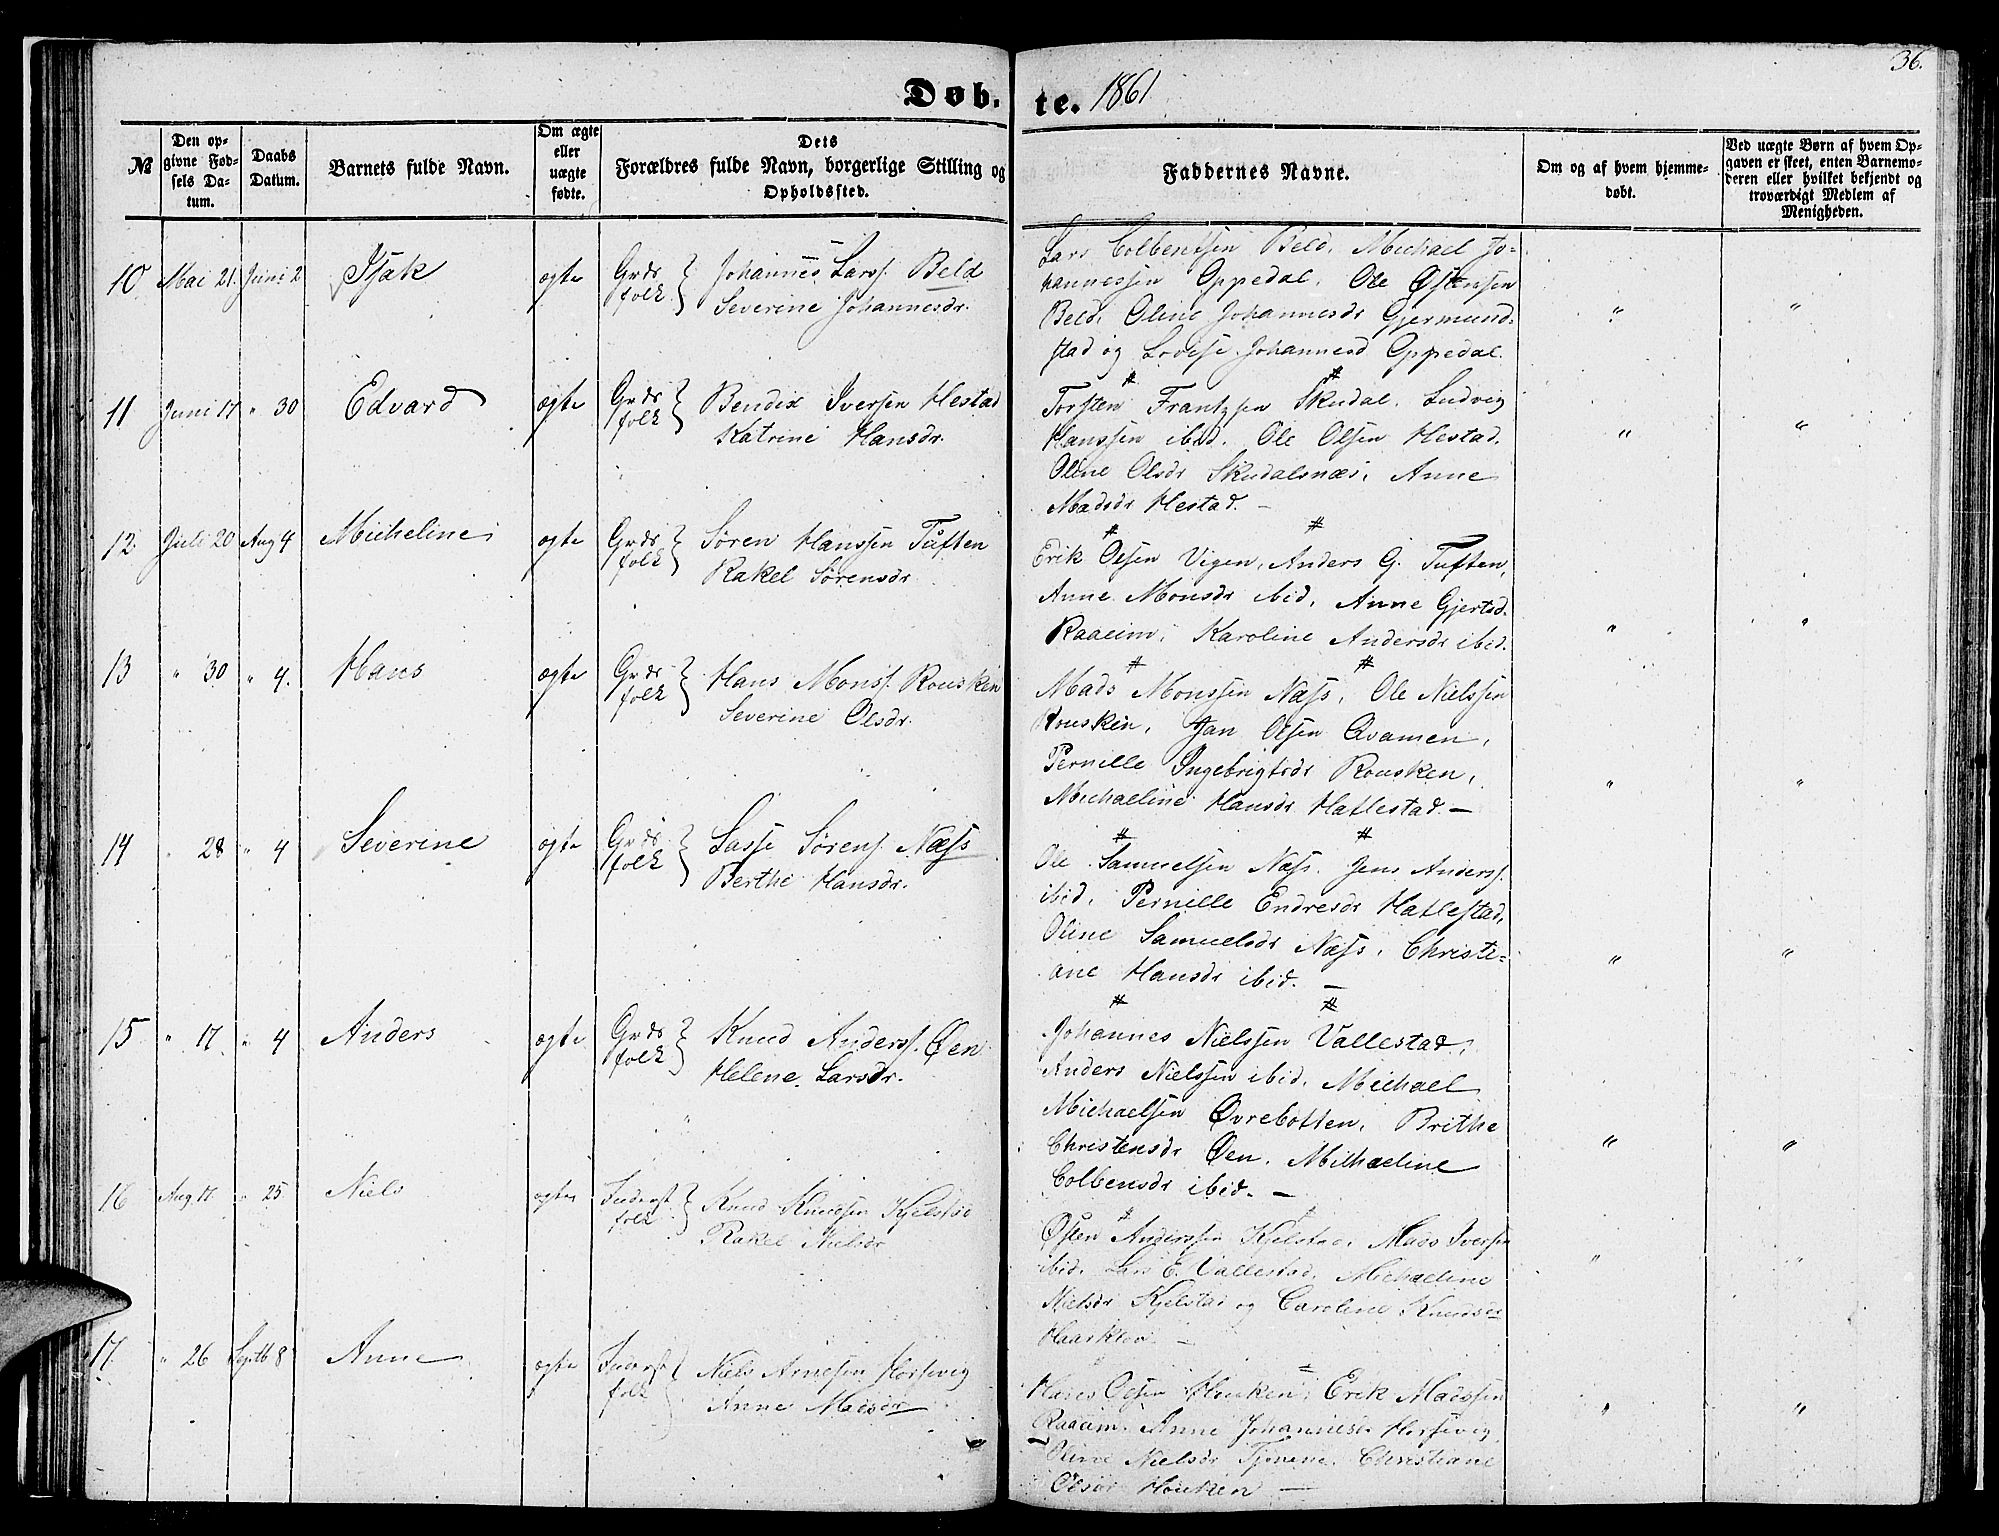 36.
Døb. te. 1861
№
Den opgivne Fødsels Datum.
Daabs Datum.
Barnets fulde Navn.
Om ægte eller uægte fødte.
Dets Forældres fulde Navn, borgerlige Stilling og Opholdssted.
Faddernes Navne.
Om og af hvem hjemmedøbt.
Ved uægte Børn af hvem Opgaven er skeet, enten Barnemoderen eller hvilket bekjendt og troværdigt Medlem af Menigheden.
10 Mai 21. Juni 2 Isak ægte Grds folk Johannes Larss. Beld
Severine Johannesdr.
Lars Colbentsen Beld, Michael Jo-
hannessen Oppedal, Ole Østensen
Beld, Oline Johannesdr Gjermund-
stad og Lovise Johannesd Oppedal.
" "
11 Juni 17 " 30 Edvard ægte Grds folk Bendix Iversen Hestad
Katrine Hansdr.
Torsten Frantzsen Skudal, Ludvig
Hanssen ibid. Ole Olsen Hestad.
Oline Olsdr Skudalsnæs, Anne
Madsdr Hestad. —
" "
12 Juli 20 Aug 4 Micheline ægte Grds folk Søren Hanssen Tuften
Rakel Sørensdr
Erik Olsen Vigen, Anders G. Tuften,
Anne Monsdr ibid, Anne Gjertsd.
Raaeim, Karoline Andersdr ibid.
" "
13 " 30 " 4. Hans ægte Grds folk Hans Monss. Rousken
Severine Olsdr.
Mads Monssen Næss, Ole Nielssen
Rousken, Jan Olsen Qvamen,
Pernille Ingebrigtsdr Rousken,
Michaeline Hansdr Hatlestad. —
" "
14 " 28 " 4 Severine ægte Grds folk Lasse Sørens. Næss
Berthe Hansdr.
Ole Samuelsen Næss. Jens Anderss.
ibid, Pernille Endresdr Hatlestad,
Oline Samuelsdr Næss, Christi-
ane Hansdr ibid. —
" "
15 " 17 " 4 Anders ægte Grds folk Knud Anderss. Øen
Helene Larsdr.
Johannes Nielssen Vallestad,
Anders Nielssen ibid, Michael
Michaelsen Øvrebotten, Brithe
Christensdr Øen, Mithaeline
Colbensdr ibid. —
" "
16 Aug 17. " 25 Niels ægte Inderst folk Knud Knudsen Kjelstad
Rakel Nielsdr
Østen Anderssen Kjelstad, Mads Iversen
ibid, Lars E. Vallestad, Michaeline
Nielsdr Kjelstad og Caroline Knudsdr
—
" "
17. " 26 Septb 8 Anne ægte Inderst folk Niels Arnesen Horsevig
Anne Madsdr
Hans Olsen Houken, Erik Madssen
Raaeim, Anne Johannesd. Horsevig,
Oline Nielsdr Christiane
Olsdr Houken —
" "